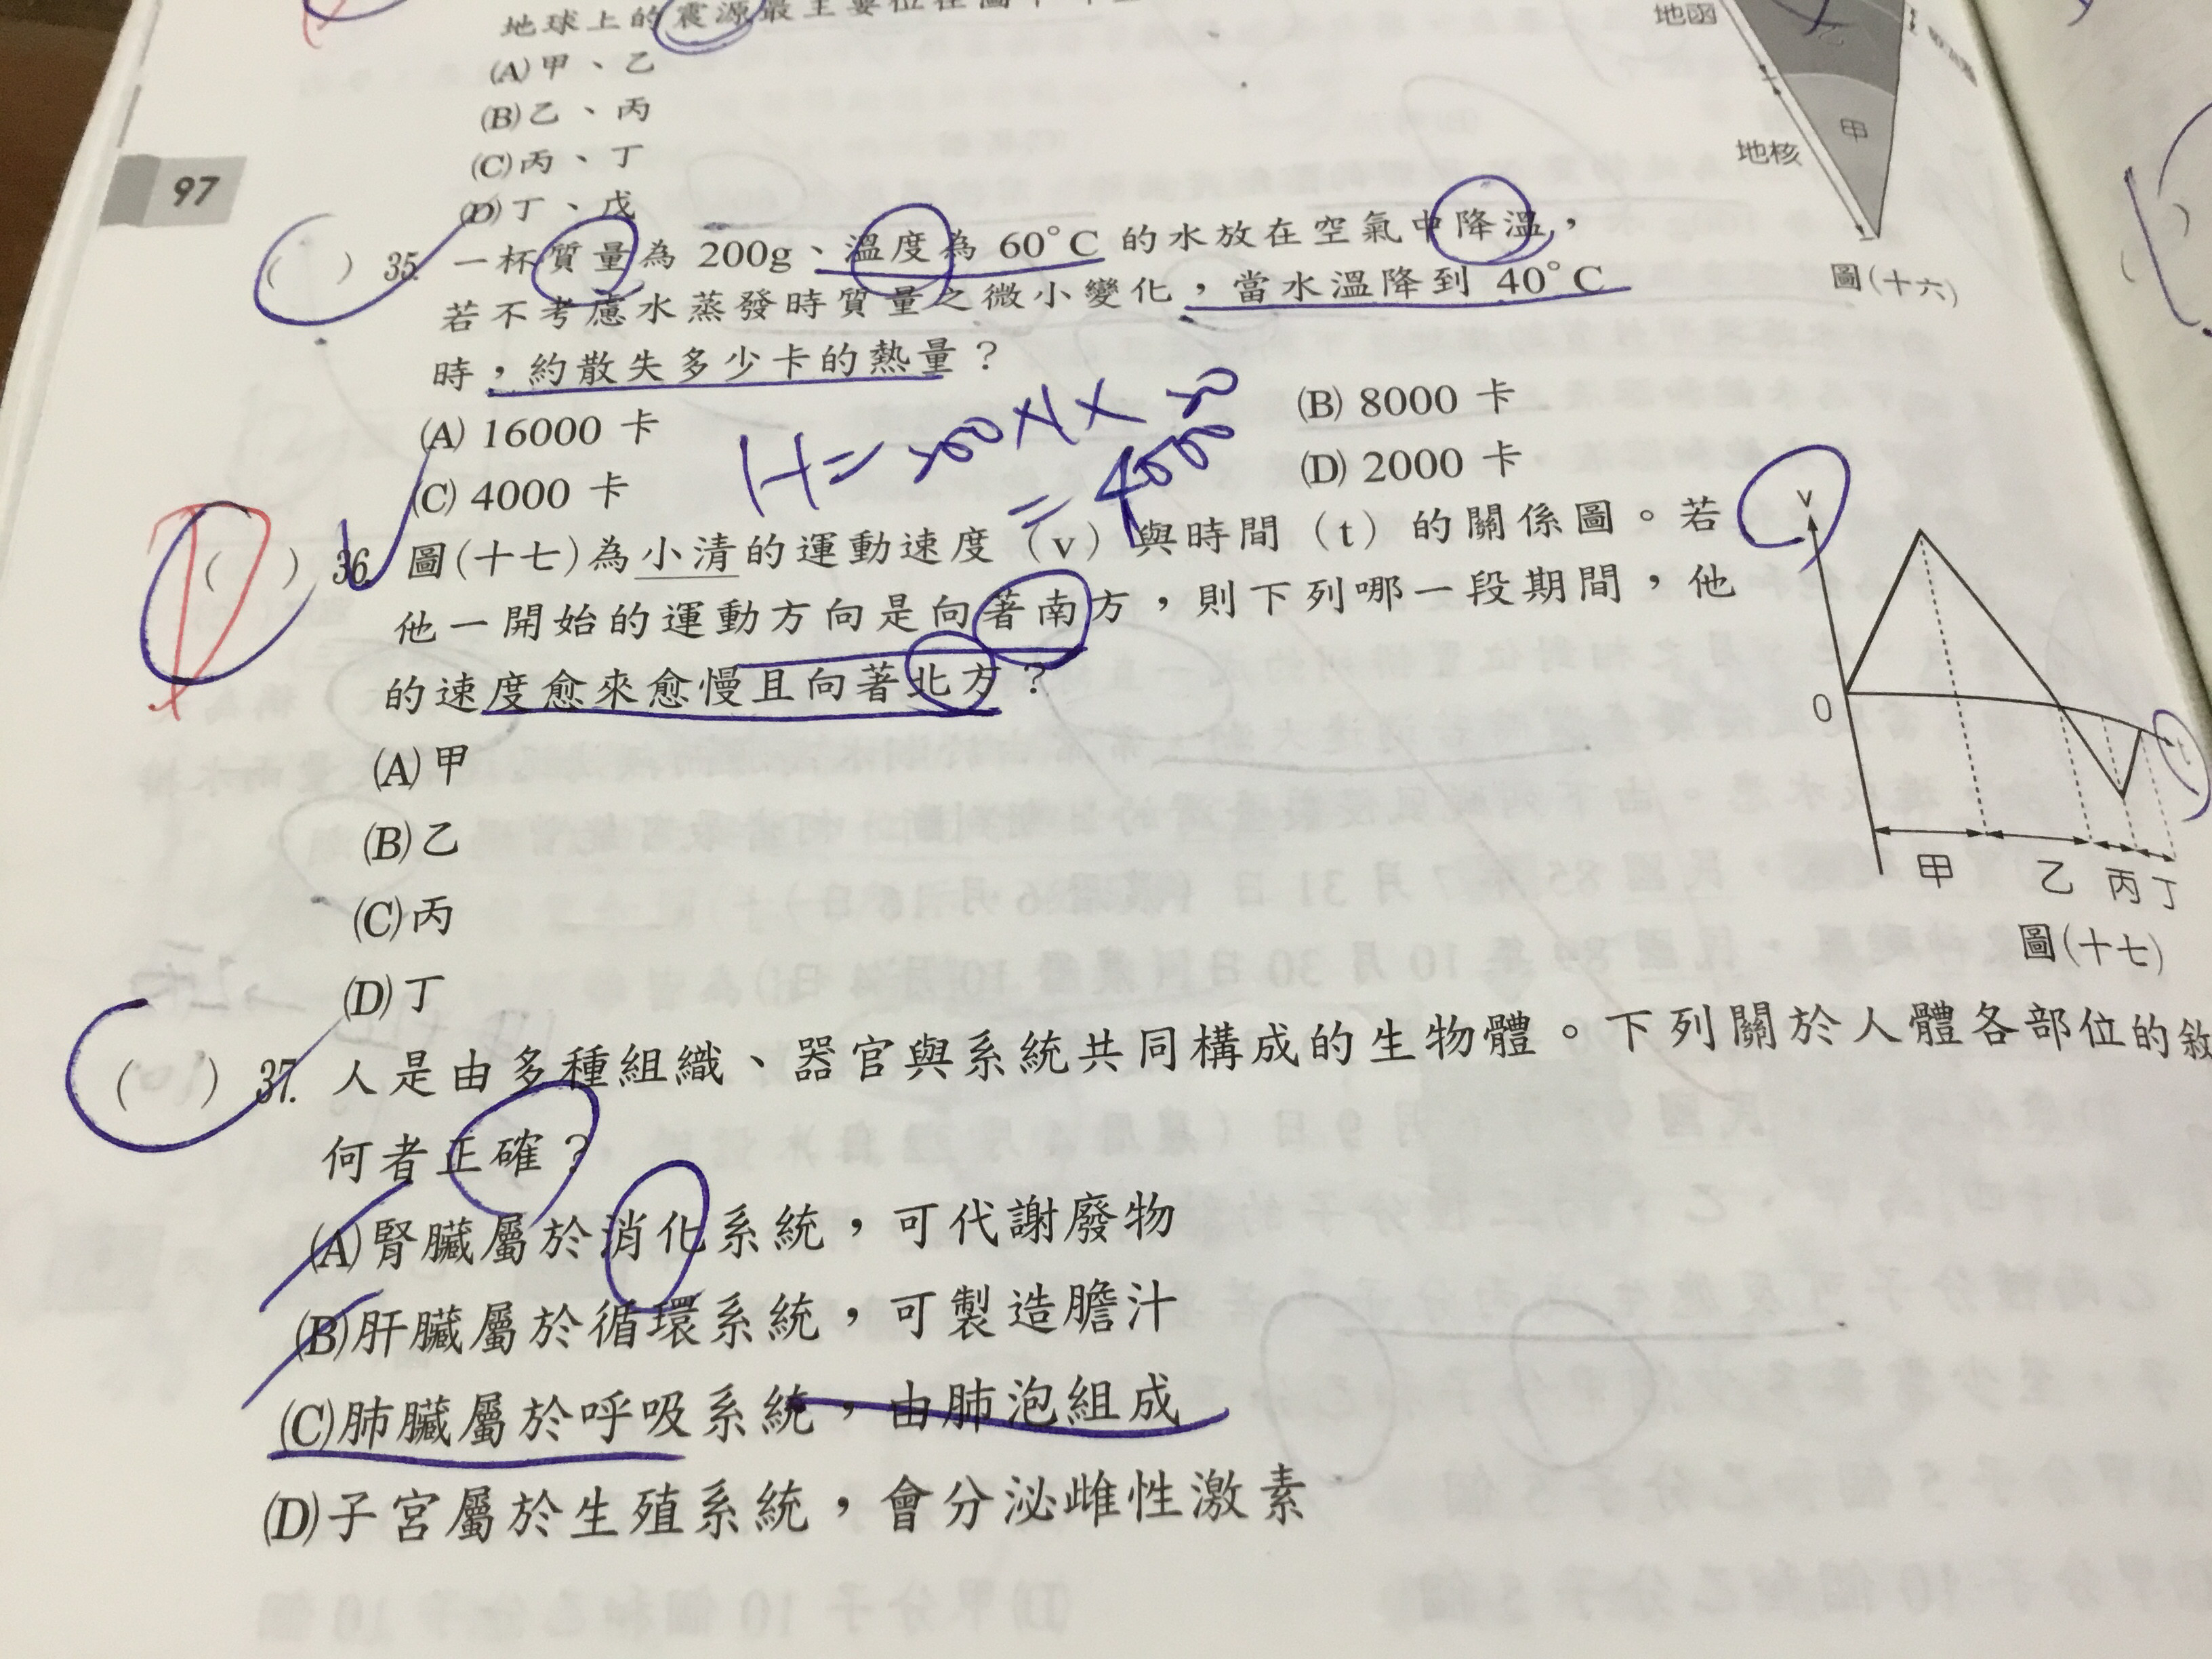 地球上的震源最主要位在圖中
(A)甲、乙
(B)乙、丙
(C)丙、丁
(D)丁、戊
地函
乙
甲
地核
圖(十六)
97
( ) 35. 一杯質量為 200g、溫度為 60°C 的水放在空氣中降溫，
若不考慮水蒸發時質量之微小變化，當水溫降到 40°C
時，約散失多少卡的熱量？
(A) 16000 卡
(B) 8000 卡
(C) 4000 卡
(D) 2000 卡
H=200×1×20
=4000
( ) 36. 圖(十七)為小清的運動速度（v）與時間（t）的關係圖。若
他一開始的運動方向是向著南方，則下列哪一段期間，他
的速度愈來愈慢且向著北方？
(A)甲
(B)乙
(C)丙
(D)丁
v
0
t
甲 乙 丙 丁
圖(十七)
( ) 37. 人是由多種組織、器官與系統共同構成的生物體。下列關於人體各部位的敘
何者正確？
(A)腎臟屬於消化系統，可代謝廢物
(B)肝臟屬於循環系統，可製造膽汁
(C)肺臟屬於呼吸系統，由肺泡組成
(D)子宮屬於生殖系統，會分泌雌性激素